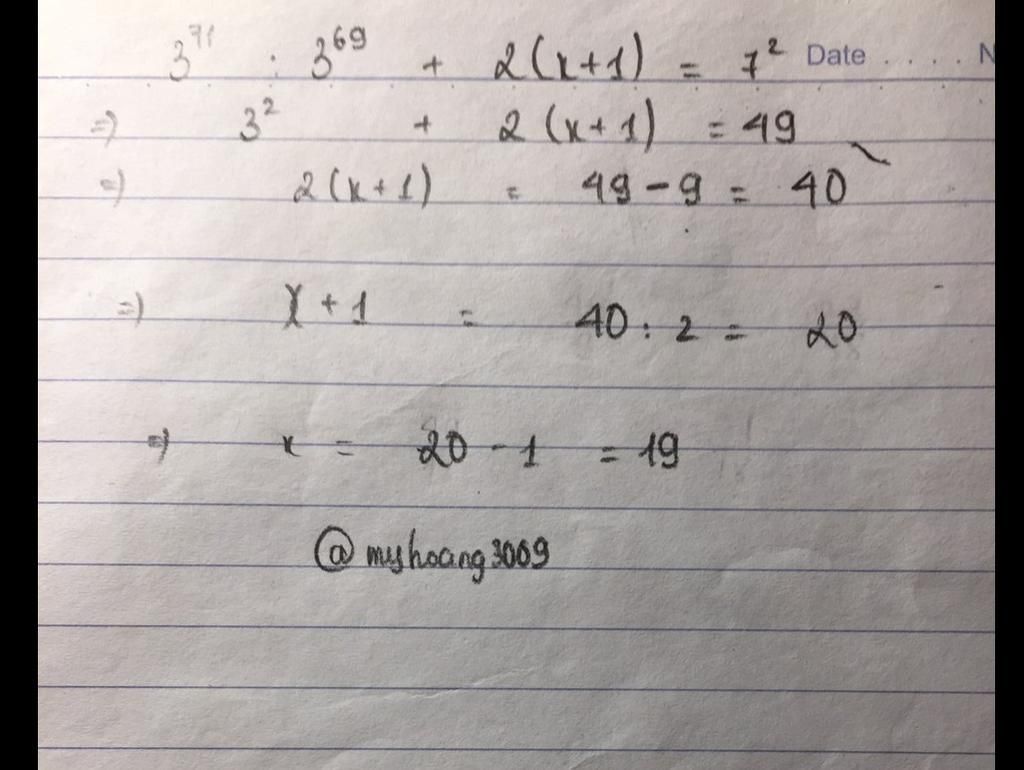 3^71 : 3^69 + 2(x+1) = 7^2 Date . . . . N
=> 3^2 + 2(x+1) = 49
=> 2(x+1) = 49 - 9 = 40
=> x + 1 = 40 : 2 = 20
=> x = 20 - 1 = 19
@myhoang3009